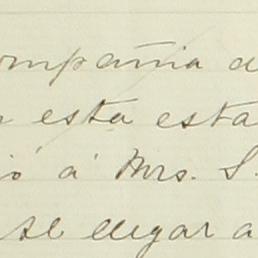 ompañia d
n esta esta
ió á Mrs. S.
se llegar a